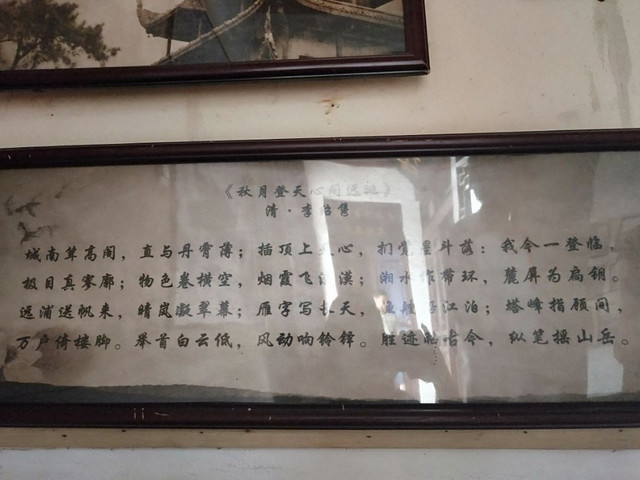 《秋月登天心阁远眺》
清·李绍隽
城南耸高阁，直与丹霄薄；插顶上天心，扪觉星斗落：我今一登临，
极目真寥廓；物色卷横空，烟霞飞漠；湘水作带环，麓屏为扃钥。
远浦送帆来，晴岚凝翠幕；雁字写长天，江泊；塔峰指顾间，
万户倚楼脚。举首白云低，风动响铃铎。胜迹古今，纵笔摇山岳。